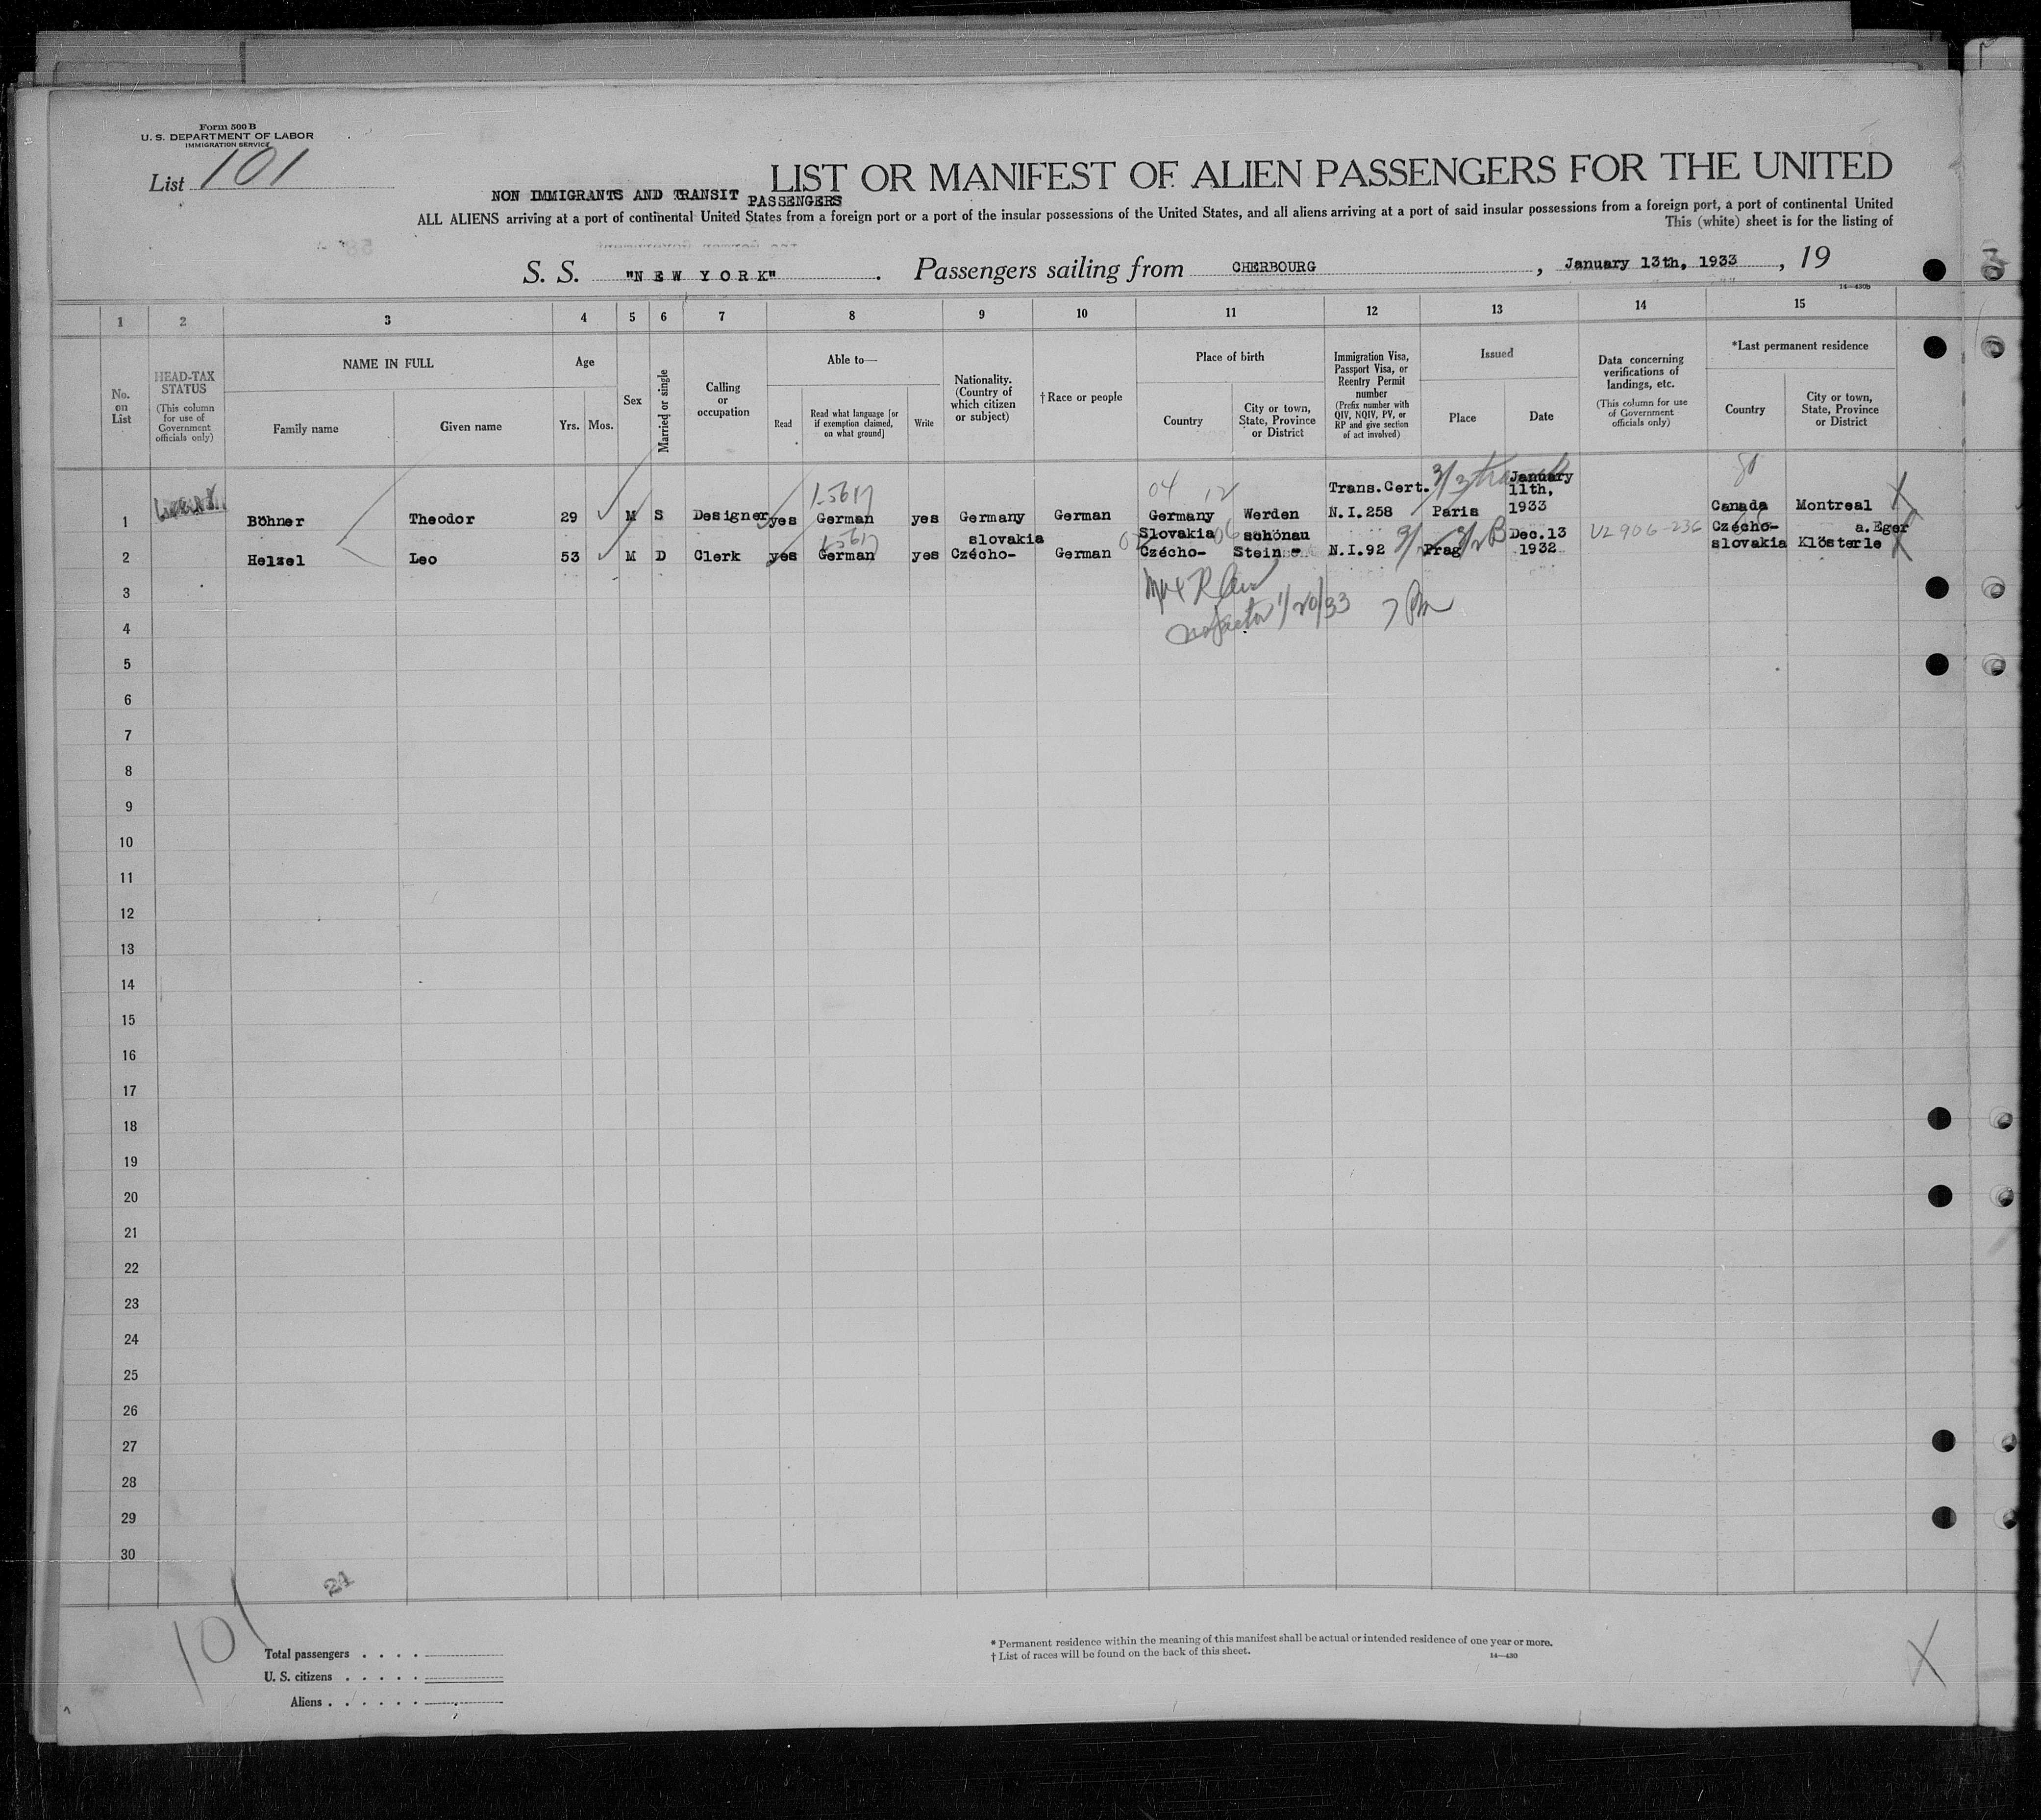 Form 500 B
U. S. DEPARTMENT OF LABOR
IMMIGRATION SERVICE
List 101
LIST OR MANIFEST OF ALIEN PASSENGERS FOR THE UNITED
NON IMMIGRANTS AND TRANSIT PASSENGERS
ALL ALIENS arriving at a port of continental United States from a foreign port or a port of the insular possessions of the United States, and all aliens arriving at a port of said insular possessions from a foreign port, a port of continental United
This (white) sheet is for the listing of
S. S. "N E W Y O R K" . Passengers sailing from CHERBOURG , January 13th, 1933 , 19
14—430B
1 2 3 4 5 6 7 8 9 10 11 12 13 14 15
No. on List
HEAD-TAX STATUS
(This column for use of Government officials only)
NAME IN FULL
Family name
Given name
Age
Yrs.
Mos.
Sex
Married or single
Calling or occupation
Able to—
Read
Read what language [or if exemption claimed, on what ground]
Write
Nationality. (Country of which citizen or subject)
† Race or people
Place of birth
Country
City or town, State, Province or District
Immigration Visa, Passport Visa, or Reentry Permit number
(Prefix number with QIV, NQIV, PV, or RP and give section of act involved)
Issued
Place
Date
Data concerning verifications of landings, etc.
(This column for use of Government officials only)
*Last permanent residence
Country
City or town, State, Province or District
1 Böhner Theodor 29 M S Designer yes German yes Germany German Germany Werden Trans.Cert. N.I.258 Paris January 11th, 1933 Canada Montreal
2 Helzel Leo 53 M D Clerk yes German yes Czécho-slovakia German Czécho-Slovakia Stein-schönau N.I.92 Prag Dec.13 1932 VL 906-236 Czécho-slovakia Klösterle a.Eger
04 12
1/20/33 7 Pm
3
4
5
6
7
8
9
10
11
12
13
14
15
16
17
18
19
20
21
22
23
24
25
26
27
28
29
30
21
101
Total passengers . . . .
U. S. citizens . . . . .
Aliens . . . . . .
* Permanent residence within the meaning of this manifest shall be actual or intended residence of one year or more.
† List of races will be found on the back of this sheet.
14—430
X